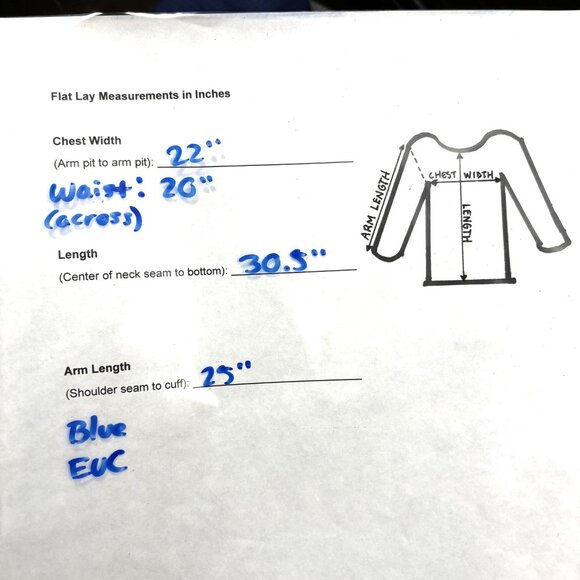 Flat Lay Measurements in Inches
Chest Width
(Arm pit to arm pit): 22"
Waist: 20"
(across)
Length
(Center of neck seam to bottom): 30.5"
Arm Length
(Shoulder seam to cuff): 25"
Blue
EUC
ARM LENGTH
CHEST WIDTH
LENGTH